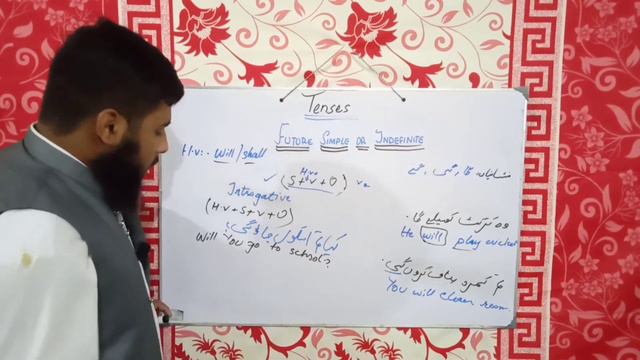 Tenses
FUTURE SIMPLE OR INDEFINITE
H.v:- Will / shall
نشانیاں گا، گی، گے
(S+V+O)
Introgative
(H.v+S+V+O)
کیا تم اسکول جاؤ گی؟
Will You go to school?
وہ کرکٹ کھیلے گا۔
He will play cricket
تم کمرہ صاف کرو گی۔
You will clean room.